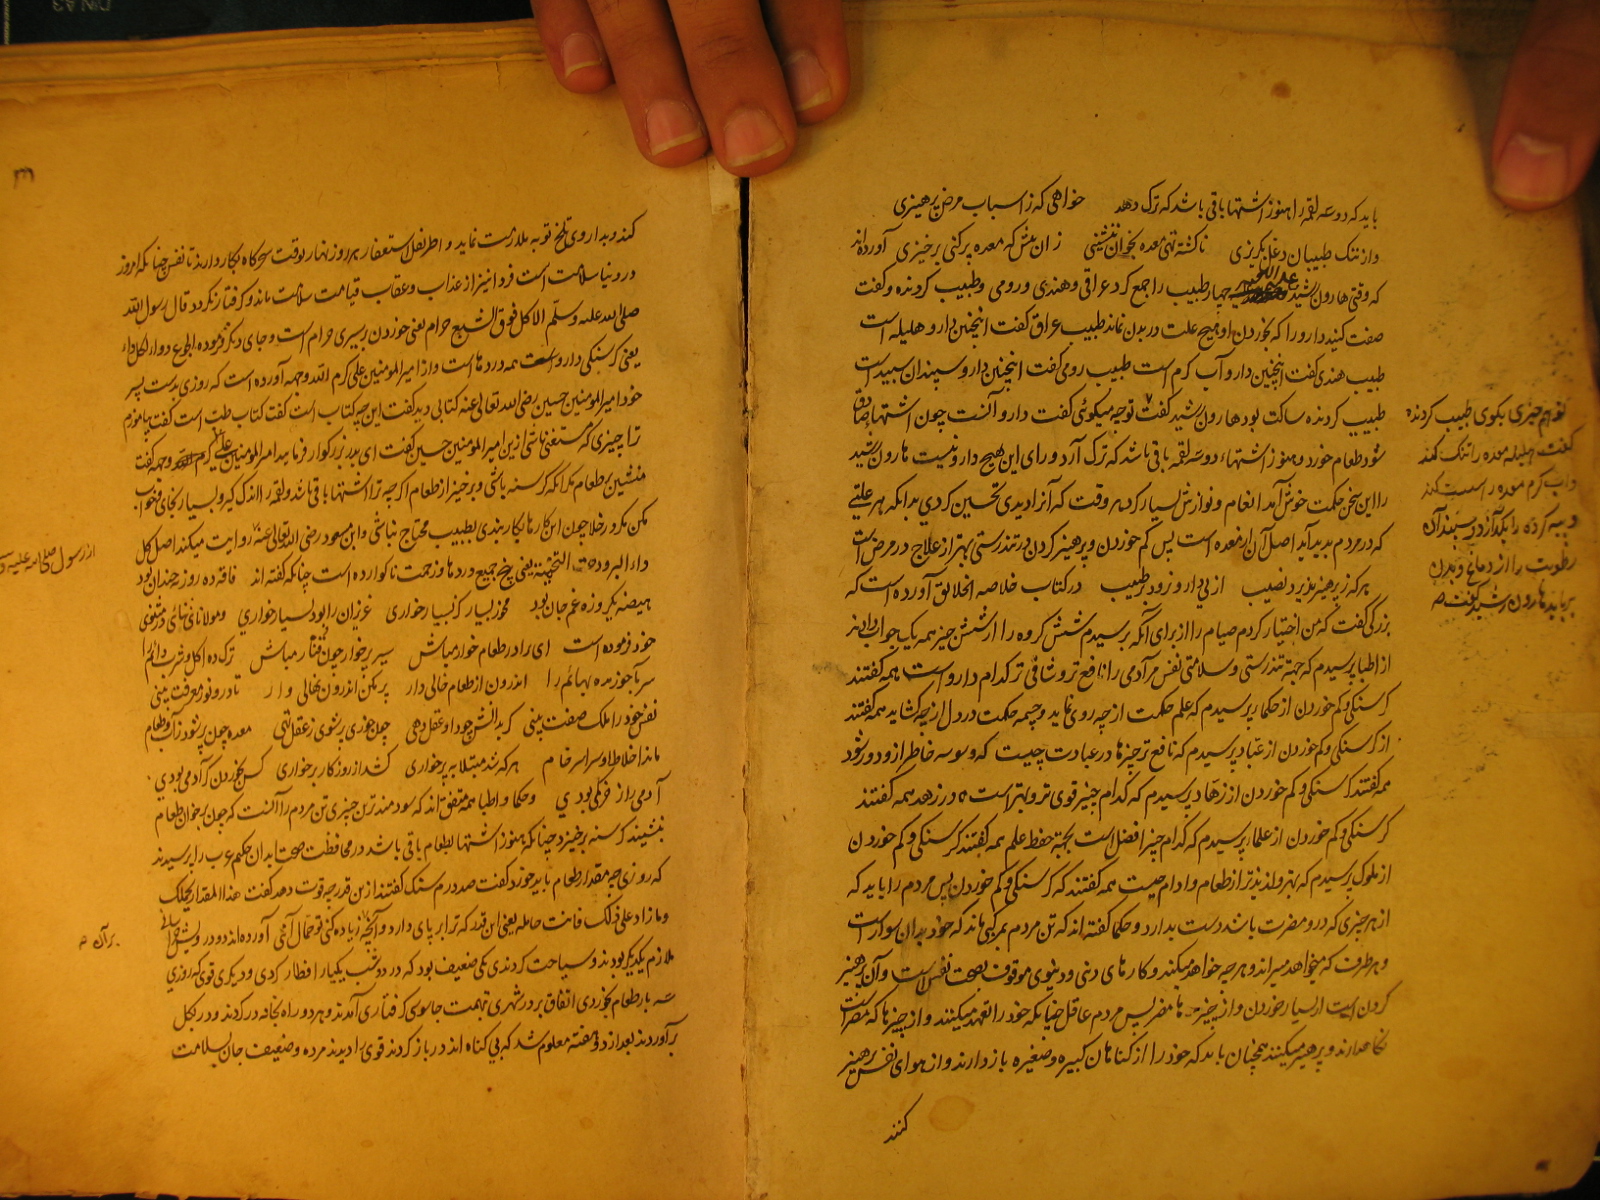 باید که دو سه لقمه را هنوز اشتها باقی باشد که ترک دهد خواهی که ز اسباب مرض پرهیزی
وز ننگ طبیبان دغل بگریزی ناگشته تهی معده بخوان ننشینی زان پیش که معده پر کنی برخیزی آورده‌اند
که وقتی هارون رشید چهار طبیب را جمع کرد عراقی و هندی و رومی و طبیب کرده و گفت
صفت کنید دارو را که بخوردن او هیچ علت در بدن نماند طبیب عراق گفت اینچنین دارو هلیله است
طبیب هندی گفت اینچنین دارو آب گرم است طبیب رومی گفت اینچنین دارو سپندان سپید است
طبیب کرده ساکت بود هارون رشید گفت تو چه میگوئی گفت دارو آنست چون اشتها صادق
شود طعام خورد و هنوز اشتهاء دو سه لقمه باقی باشد که ترک آرد ورای این هیچ دارو نیست هارون رشید
را این سخن حکمت خوش آمد انعام و نوازش بسیار کرد وقت که آنرا دیدی تحسین کردی بدانکه هر علتی
که در مردم پدید آید اصل آن از معده است پس کم خوردن و پرهیز کردن در تندرستی بهتر از علاج در مرض است
هرکه ز پرهیز پذیرد نصیب از پی دارو نرود بر طبیب در کتاب خلاصه الخلایق آورده است که
بزرگی گفت که من اختیار کردم صیام را از برای آنکه پرسیدم شش گروه را از شش چیز همه یک جواب دادند
از اطبا پرسیدم که جهة تندرستی و سلامتی نفس مر آدمی را نافع تر و شافی تر کدام دارو است همه گفتند
گرسنگی و کم خوردن از حکما پرسیدم که علم حکمت از چه روی نماید و چشمه حکمت در دل از چه گشاید همه گفتند
از گرسنگی و کم خوردن از عباد پرسیدم که نافع تر چیزها در عبادت چیست که وسوسه خاطر ازو دور شود
همه گفتند گرسنگی و کم خوردن از زهاد پرسیدم که کدام چیز قوی تر و بهتر است در زهد همه گفتند
گرسنگی و کم خوردن از علما پرسیدم که کدام چیز افضل است بجهة حفظ علم همه گفتند گرسنگی و کم خوردن
از ملوک پرسیدم که بهتر و لذیذتر از طعام و ادام چیست همه گفتند که گرسنگی و کم خوردن پس مردم را باید که
از هر چیزی که درو مضرت باشد دست بدارد و حکما گفته اند که تن مردم بمرکبی ماند که خود بدان سوار است
و هر طرف که میخواهد میراند و هرچه خواهد میکند و کارهای دینی و دنیوی موقوف بصحت نفس است و آن پرهیز
کردن است از بسیار خوردن و از چیزها مضر پس مردم عاقل چنانکه خود را تعهد میکنند و از چیزها که مضر است
نگاهدارند و پرهیز میکنند همچنان باید که خود را از گناهان کبیره و صغیره باز دارند و از هوای نفس پرهیز
کنند
تو هم چیزی بگوی طبیب کرده
گفت هلیله معده را تنگ کند
و آب گرم معده را سست کند
و پیه گرده را بگدازد و سپندان
رطوبت را از دماغ و بدن
برباید هارون رشید گفت
کند و بداروی تلخ توبه ملازمت نماید و اطریفل استغفار هر روز نهار بوقت سحرگاه بکار دارد تا نفس چنانکه امروز
در دنیا سلامت است فردا نیز از عذاب و عقاب قیامت سلامت ماند و گرفتار نگردد قال رسول الله
صلی الله علیه وسلم الاکل فوق الشبع حرام یعنی خوردن بر سیری حرام است و جای دیگر فرموده الجوع دواء لکل داء
یعنی گرسنگی دارو است همه دردها است و از امیر المومنین علی کرم الله وجهه آورده است که روزی بدست پسر
خود امیر المومنین حسین رضی الله تعالی عنه کتابی دید گفت این چه کتاب است گفت کتاب طب است گفت بیاموزم
ترا چیزی که مستغنی باشی ازین امیر المومنین حسین گفت ای پدر بزرگوار فرماید امیر المومنین علی کرم الله وجهه گفت
منشین بر طعام مگر آنکه گرسنه باشی و برخیز از طعام اگرچه ترا اشتها باقی باشد و لقمه را اندک گیر و بسیار بخای و خواب
مکن مگر در خلا چون این کارها بکار بندی بطبیب محتاج نباشی و ابن مسعود رضی الله تعالی عنه روایت میکند اصل کل
داء البرودة یعنی بیخ جمیع دردها و زحمت ناگوارد است چنانکه گفته اند فاقه ده روز چندان بود
هیضه یکروزه غم جان بود مخور بسیار که بسیار خواری عزیزان را بود بسیار خواری و مولانا در مثنوی
خود فرموده است ای برادر طعام خوار مباش سیر پر خوار چون گفتار مباش
اندرون از طعام خالی دار پر مکن اندرون بخالی وار تا درو نور معرفت بینی
نفس خود را ملک صفت بینی گر بدانش چو داو عقل دهی چون خوری پر شوی ز عقل تهی معده چون پر شود ز آب و طعام
ماند اخلاط او سراسر خام هرکه شد مبتلا به پرخواری کشد از روزگار پر خواری
و حکما و اطبا همه متفق اند که سودمندترین چیزی تن مردم را آنست که چون بر خوان طعام
نشیند گرسنه برخیزد چنانکه هنوز اشتها لطعام باقی باشد در محافظت صحت ابدان حکیم عرب را پرسیدند
که روزی چه مقدار طعام باید خورد گفت صد درم سنگ گفتند ازین قدر چه قوت دهد گفت هذا المقدار یحملک
وما زاد علی ذلک فانت حامله یعنی این قدر که ترا بر پای دارد و آنچه زیاده کنی تو حمال آنی آورده اند دو درویش خراسانی
ملازم یکدیگر بودند و سیاحت کردندی یکی ضعیف بود که در دو شب یکبار افطار کردی و دیگری قوی که روزی
سه بار طعام خوردی اتفاق بر در شهری بتهمت جاسوسی گرفتار آمدند و هر دو را بخانه در کردند و در بگل
برآوردند بعد از دو هفته معلوم شد که بی گناه اند در باز کردند قوی را دیدند مرده و ضعیف جان بسلامت
از رسول صلی الله علیه و
بر آن